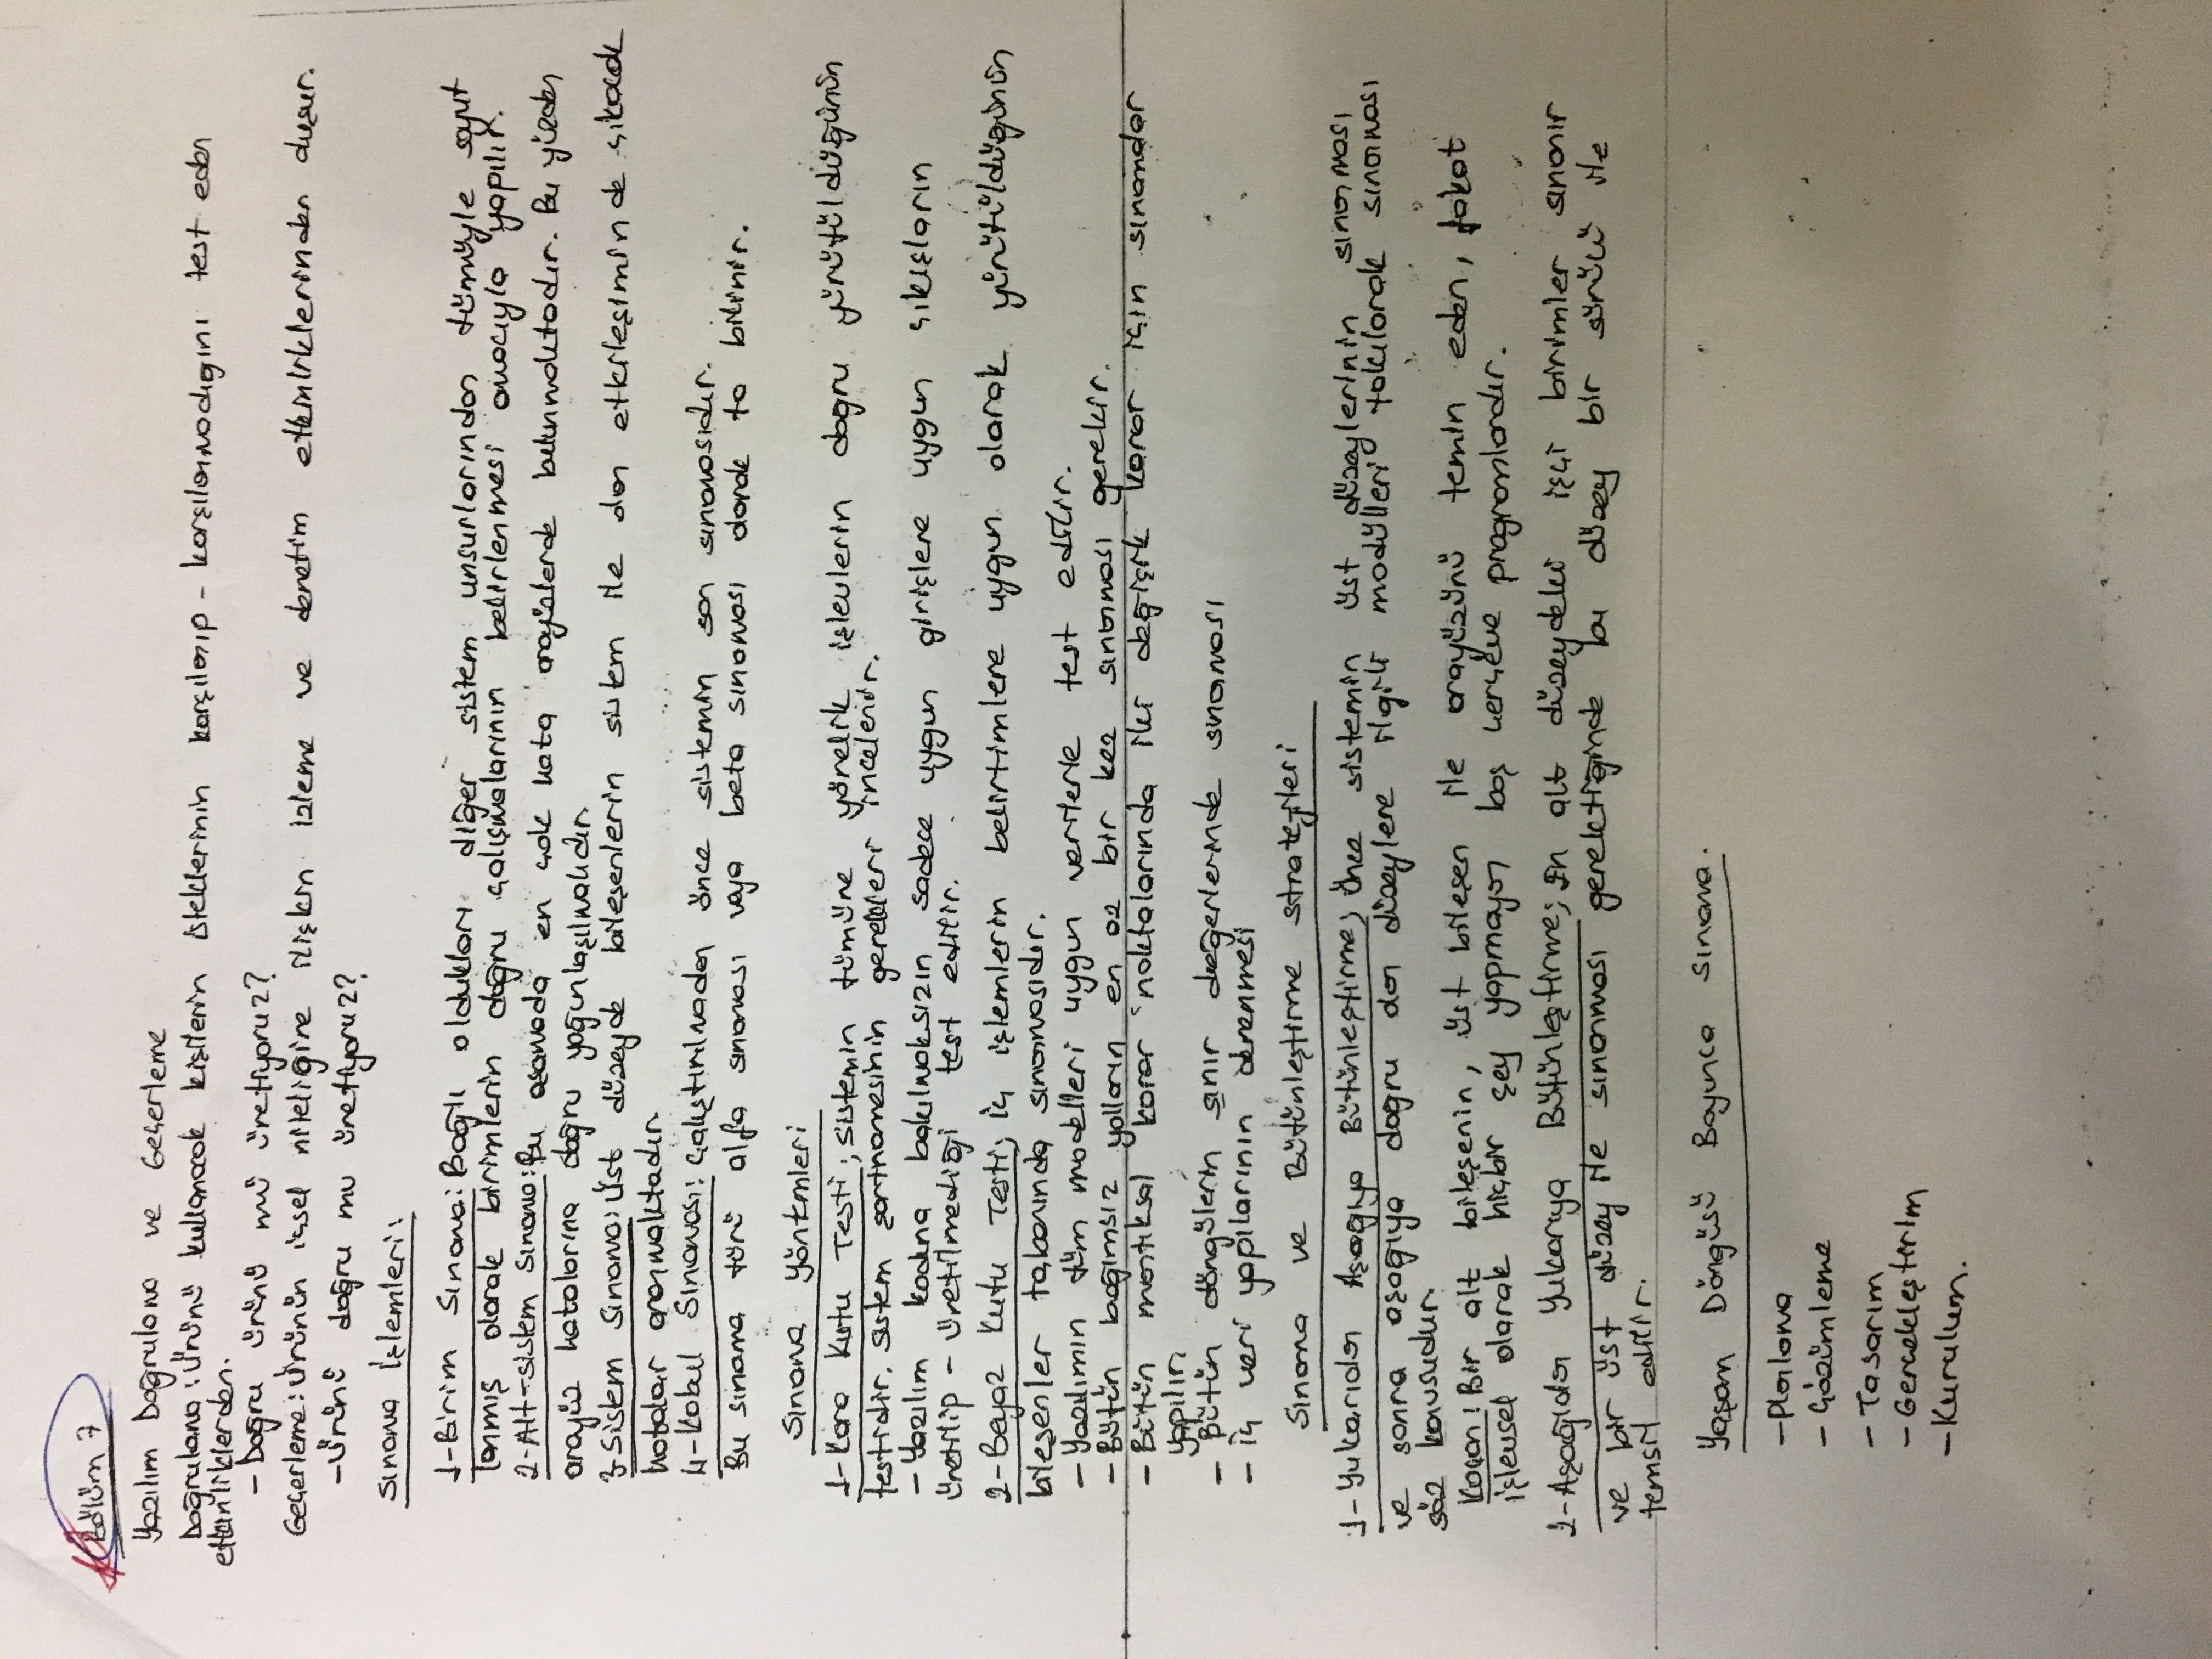 Bölüm 7
Yazılım Doğrulama ve Geçerleme
Doğrulama: Ürünü kullanacak kişilerin isteklerinin karşılanıp - karşılanmadığını test eden
etkinliklerden.
- Doğru ürünü mü üretiyoruz?
Geçerleme: Ürünün içsel niteliğine ilişkin izleme ve denetim etkinliklerinden duşur.
- Ürünü doğru mu üretiyoruz?
Sınama İşlemleri:
1-Birim Sınama: Bağlı oldukları diğer sistem unsurlarından tümüyle soyut
lanmış olarak birimlerin doğru çalışmalarının belirlenmesi amacıyla yapılır.
2-Alt-sistem Sınama: Bu aşamada en çok hata arayüzlerde bulunmaktadır. Bu yüzden
arayüz hatalarına doğru yoğunlaşılmalıdır.
3-Sistem Sınama: Üst düzeyde bileşenlerin sistem ile olan etkileşiminde çıkacak
hatalar aranmaktadır.
4-Kabul Sınaması: Çalıştırılmadan önce sistemin son sınamasıdır.
Bu sınama türü alfa sınaması veya beta sınaması olarak ta bilinir.
Sınama Yöntemleri
1-Kara Kutu Testi; Sistemin tümüne yönelik işlevlerin doğru yürütüldüğünün
testidir. Sistem şartnamesinin gerekleri incelenir.
- Yazılım koduna bakılmaksızın sadece uygun girişlere uygun çıkışların
üretilip - üretilmediği test edilir.
2-Beyaz Kutu Testi; İç işlemlerin belirtimlere uygun olarak yürütüldüğünün
bileşenler tabanında sınanmasıdır.
- Yazılımın tüm modelleri uygun verilerle test edilir.
- Bütün bağımsız yolların en az bir kez sınanması gerekir.
- Bütün mantıksal karar noktalarında iki değişik karar için sınamalar
yapılır.
- Bütün döngülerin sınır değerlerinde sınanması
- İç veri yapılarının denenmesi
Sınama ve Bütünleştirme Stratejileri
1-Yukarıdan Aşağıya Bütünleştirme; Önce sistemin üst düzeylerinin sınanması
ve sonra aşağıya doğru olan düzeylere ilgili modülleri takılarak sınanması
söz konusudur.
Koçan: Bir alt bileşenin, üst bileşen ile arayüzünü temin eden, fakat
işlevsel olarak hiçbir şey yapmayan boş çerçeve programlardır.
2-Aşağıdan Yukarıya Bütünleştirme; En alt düzeydeki işçi birimler sınanır
ve bir üst düzey ile sınanması gerektiğinde bu düzey bir sürücü ile
temsil edilir.
Yaşam Döngüsü Boyunca Sınama.
- Planlama
- Çözümleme
- Tasarım
- Gerçekleştirim
- Kurulum.